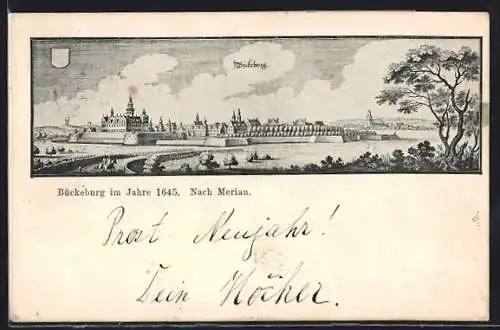 Bückeburg.
Bückeburg im Jahre 1645. Nach Merian.
Prost Neujahr!
Dein Höcker.